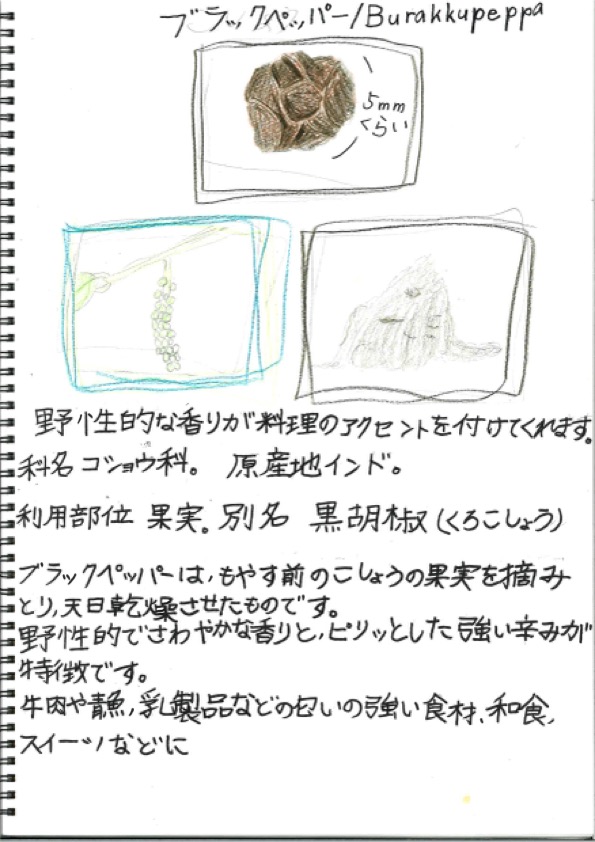 ブラックペッパー/Burakkupeppa
5mm
くらい
野性的な香りが料理のアクセントを付けてくれます。
科名 コショウ科。 原産地インド。
利用部位 果実。別名 黒胡椒(くろこしょう)
ブラックペッパーは,もやす前のこしょうの果実を摘み
とり,天日乾燥させたものです。
野性的でさわやかな香りと,ピリッとした強い辛みが
特徴です。
牛肉や青魚,乳製品などの匂いの強い食材、和食,
スイーツなどに